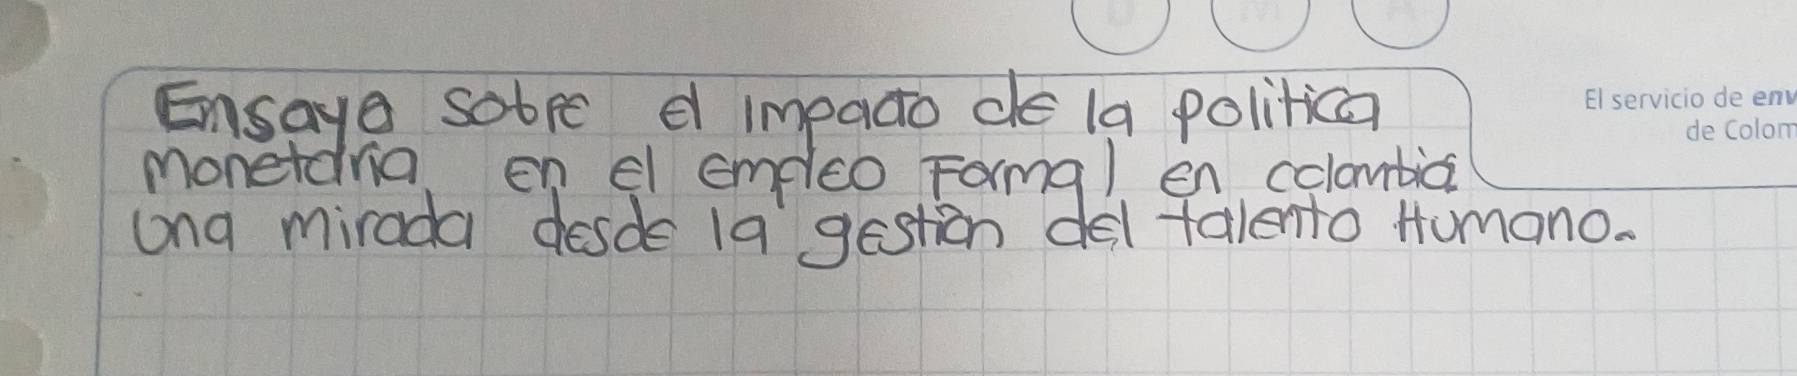 Ensayo sobre el impacto de la politica
monetaria, en el empleo Formal en colombia
una mirada desde la gestión del talento Humano.
El servicio de env
de Colom